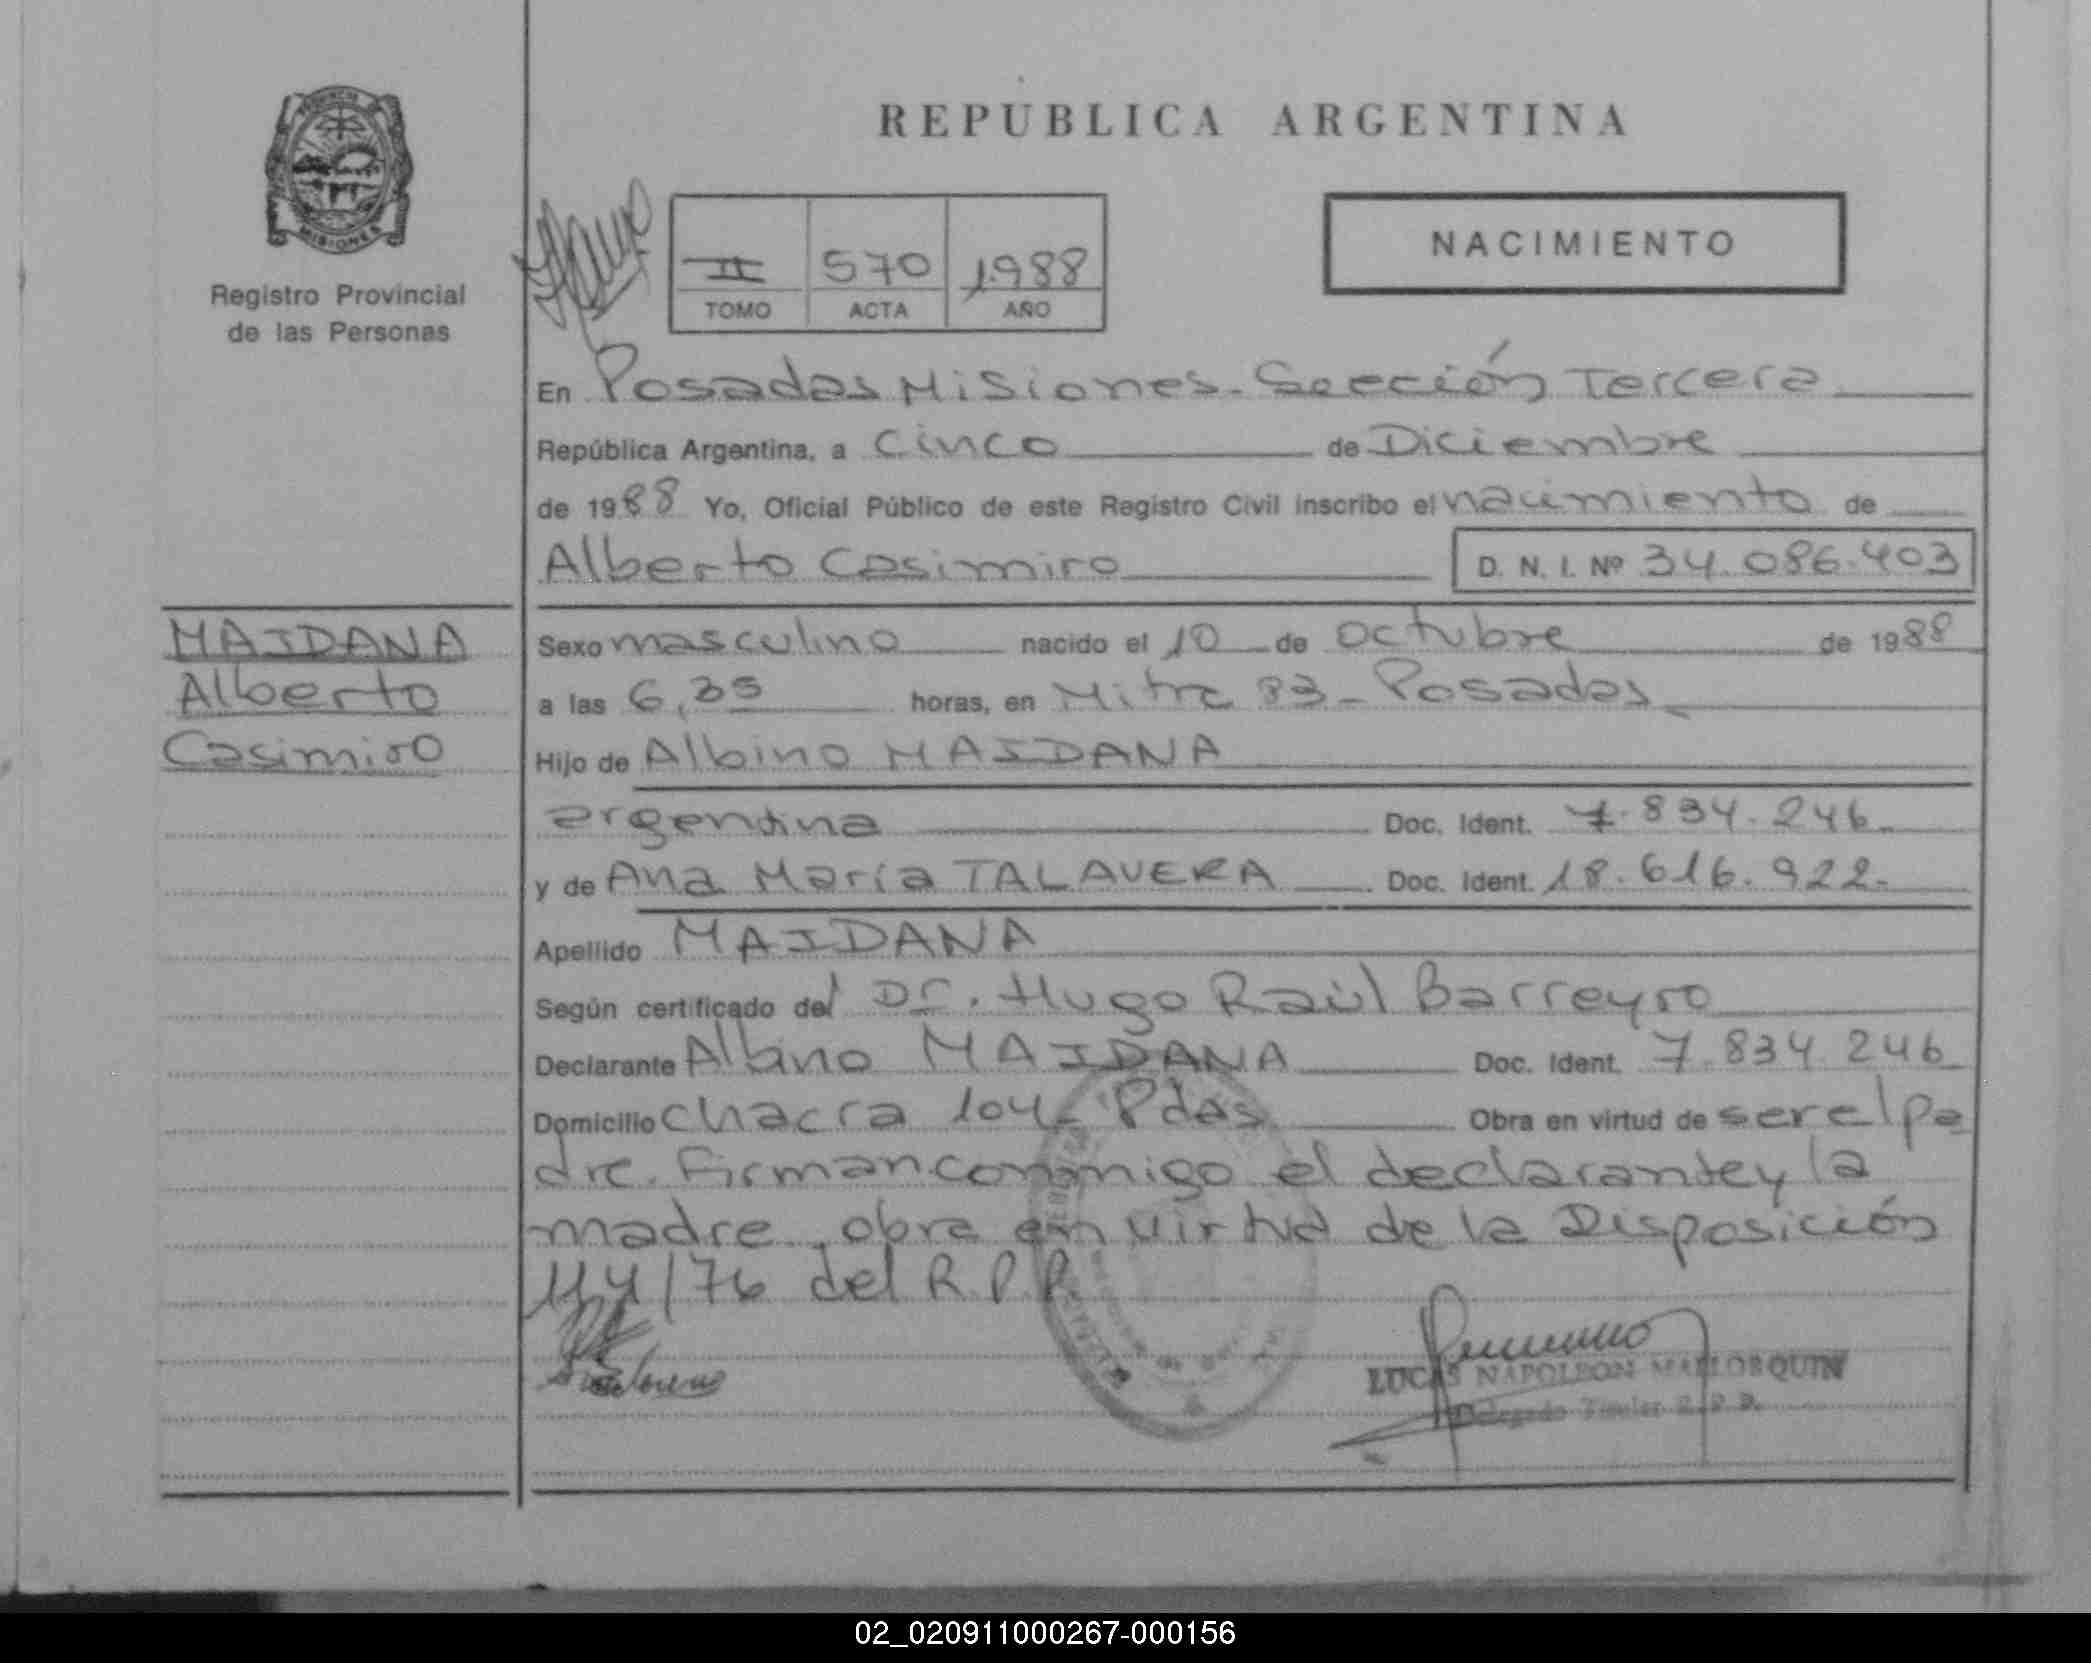 REPUBLICA ARGENTINA
MISIONES
Registro Provincial
de las Personas
II 570 1988
TOMO ACTA AÑO
NACIMIENTO
En Posadas Misiones - Sección Tercera
República Argentina, a Cinco de Diciembre
de 1988 Yo, Oficial Público de este Registro Civil inscribo el nacimiento de
Alberto Casimiro D. N. I. Nº 34.086.403
MAIDANA
Alberto
Casimiro
Sexo masculino nacido el 10 de octubre de 1988
a las 6,35 horas, en Mitre 83 - Posadas
Hijo de Albino MAIDANA
argentina Doc. Ident. 7.834.246
y de Ana María TALAVERA Doc. Ident. 18.616.922
Apellido MAIDANA
Según certificado del Dr. Hugo Raúl Barreyro
Declarante Albino MAIDANA Doc. Ident. 7.834.246
Domicilio Chacra 104 - Pdas Obra en virtud de ser el pa
dre. Firman conmigo el declarante y la
madre, obra en virtud de la Disposición
114/76 del R.P.P
LUCAS NAPOLEON MALLORQUIN
Delegado Titular R.P.P.
02_020911000267-000156